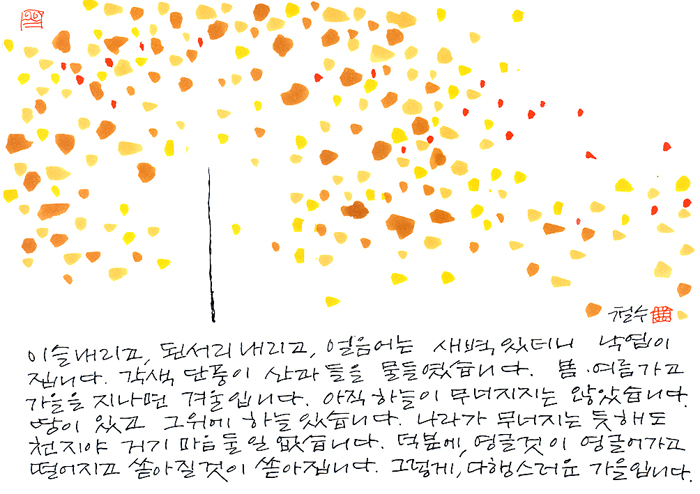 철수
이슬내리고, 된서리 내리고, 얼음어는 새벽 있더니 낙엽이
집니다. 각색 단풍이 산과 들을 물들였습니다. 봄·여름가고
가을을 지나면 겨울입니다. 아직 하늘이 무너지지는 않았습니다.
땅이 있고 그위에 하늘 있습니다. 나라가 무너지는 듯해도
천지야 거기 마음 둘 일 없습니다. 덕분에, 영글것이 영글어가고
떨어지고 쏟아질것이 쏟아집니다. 그렇게, 다행스러운 가을입니다.